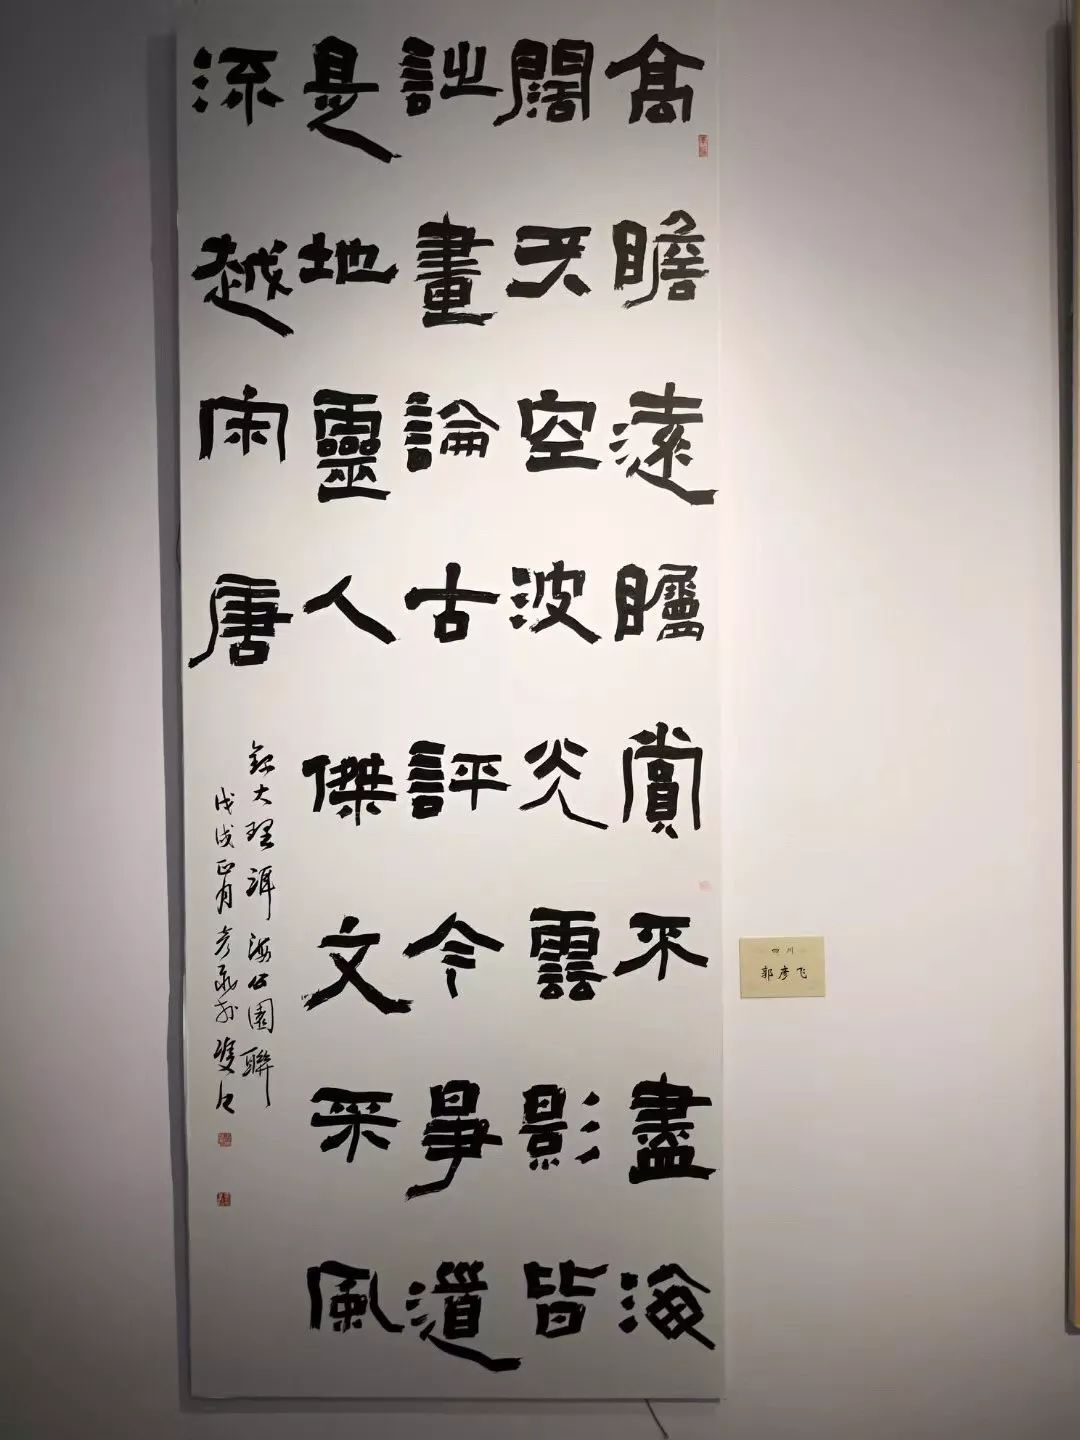 高瞻遠矚賞不盡海
闊天空波光雲影皆
詩畫論古評今事道
是地靈人傑文采風
流越宋唐
錄大理洱海公園聯
戊戌正月彥飛於雙
四川
郭彦飞